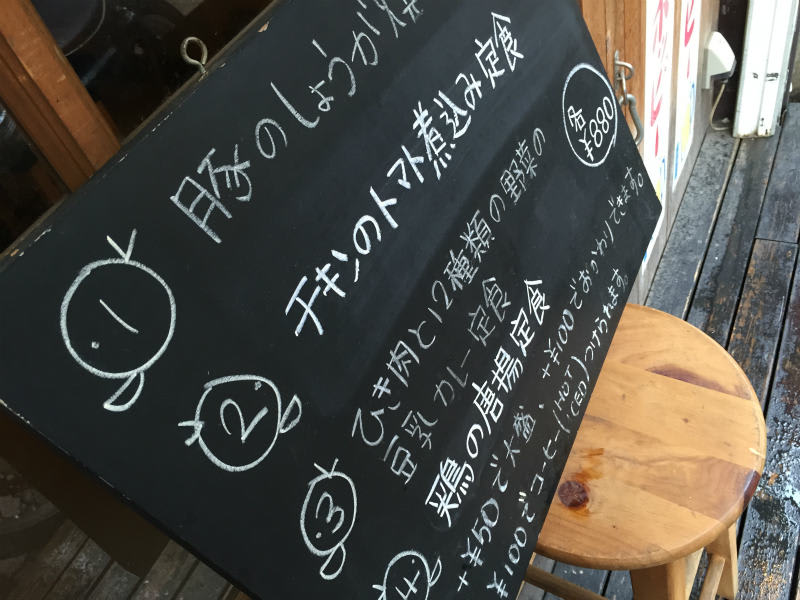 1 豚のしょうが焼
2 チキンのトマト煮込み定食
3 ひき肉と12種類の野菜の
豆乳カレー定食
4 鶏の唐揚定食
各¥880
+¥50で大盛、+¥100でおかわりできます。
+¥100でコーヒー(HOT ICED)つけられます。